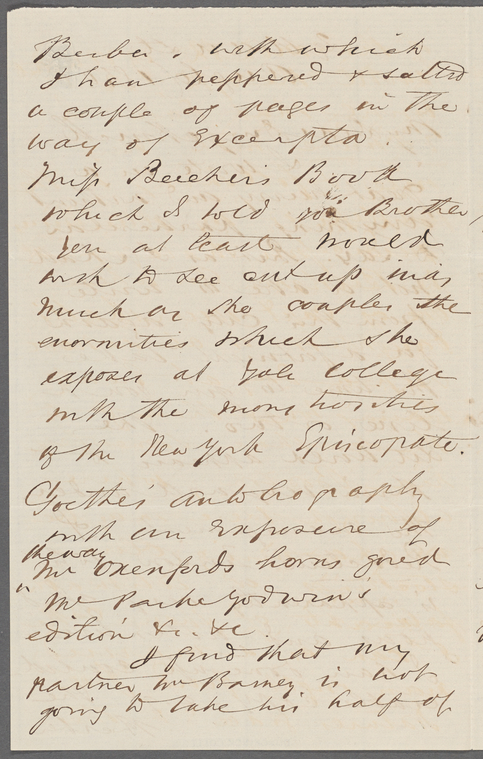 with which
I have peppered & salted
a couple of pages in the
way of Excerpta.
Miss Beecher's Book
which I told your Brother
you at least would
wish to see cut up inas
much as she couples the
enormities which she
exposes at Yale College
with the monstrosities
of the New York Episcopate.
Goethe's autobiography
with an Exposure of
the way
Mr Oxenfords horns gored
Mr Parke Godwin's
edition &c. &c.
I find that my
partner Mr Barney is not
going to take his half of